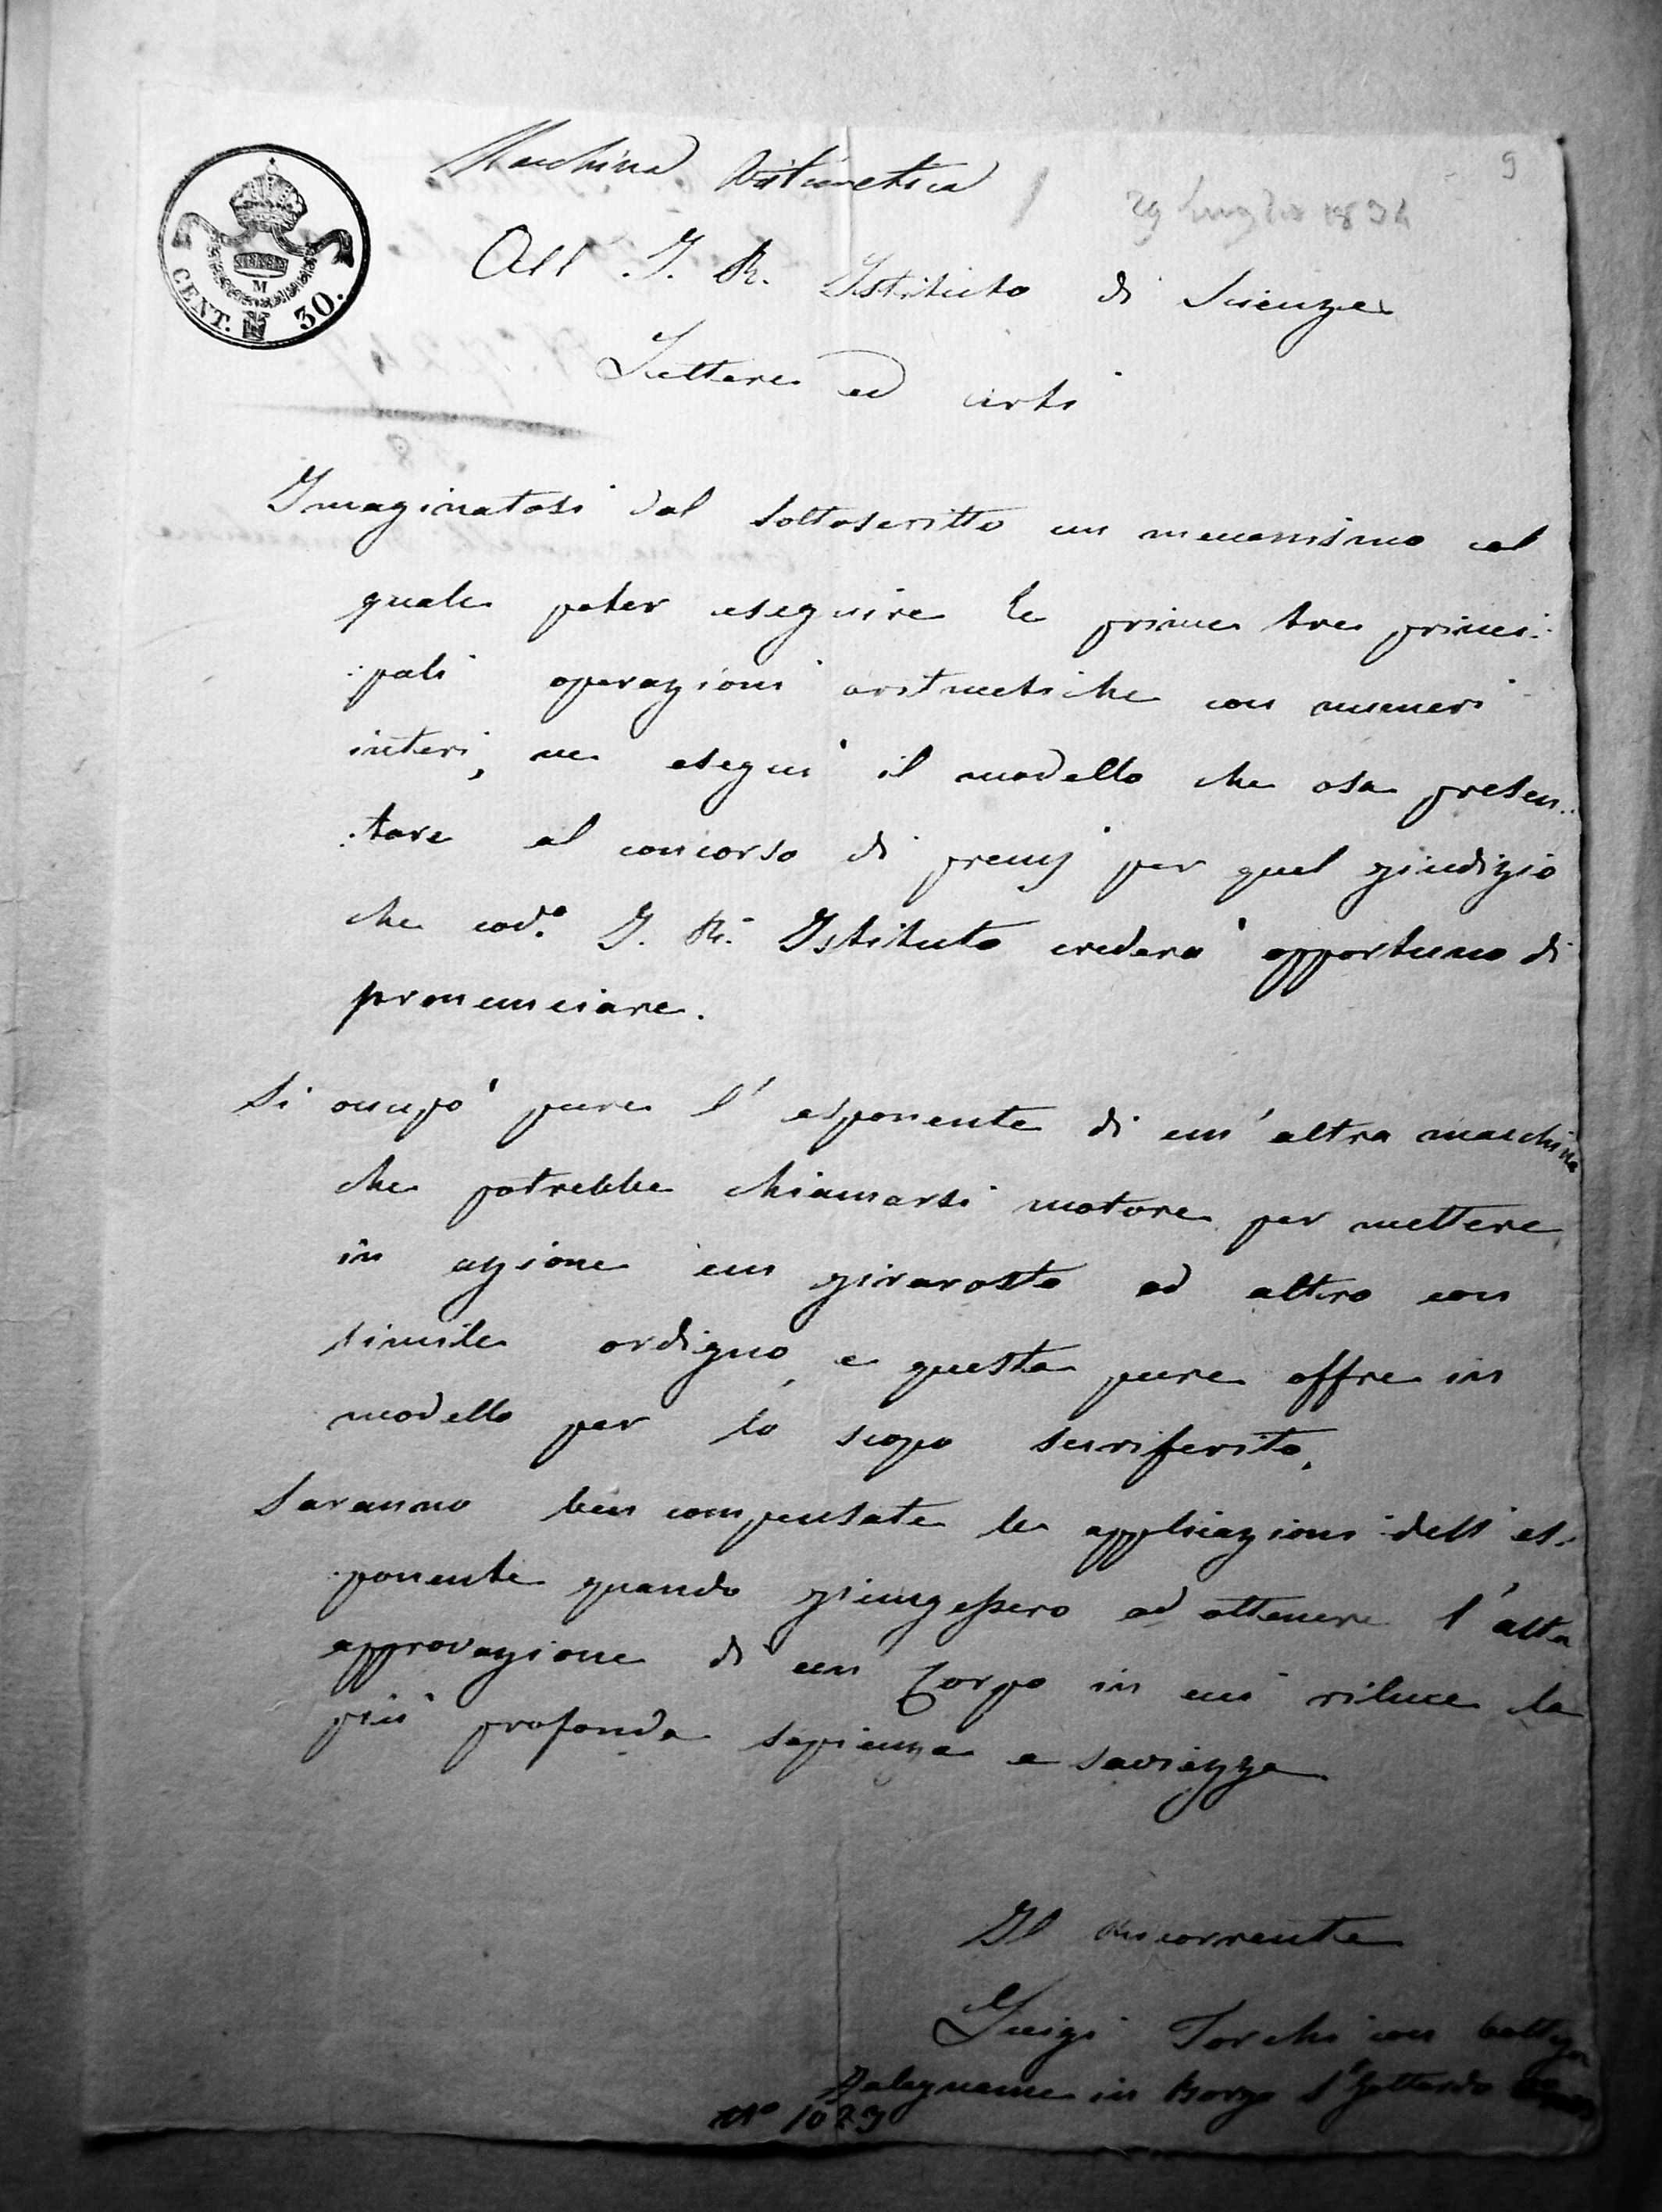 Macchina Aritmetica
29 Luglio 1834
9
CENT. 30.
M
All' I. R. Istituto di Scienze
Lettere ed arti
Imaginatosi dal sottoscritto un mecanismo col
quale poter eseguire le prime tre princi:
:pali operazioni aritmetiche con numeri
interi, ne eseguì il modello che osa presen:
:tare al concorso di premj per quel giudizio
che cod.º I. R. Istituto crederà opportuno di
pronunciare.
Si occupò pure l'esponente di un'altra macchina
che potrebbe chiamarsi motore per mettere
in azione un girarosto od altro con
simile ordigno, e questa pure offre in
modello per lo scopo surriferito.
Saranno ben compensate le applicazioni dell'es:
:ponente quando giungessero ad ottenere l'alta
approvazione di un Corpo in cui riluce la
più profonda sapienza e saviezza
Il Ricorrente
Luigi Torchi con bottega
Falegname in Borgo S. Gottardo
Nº 1029